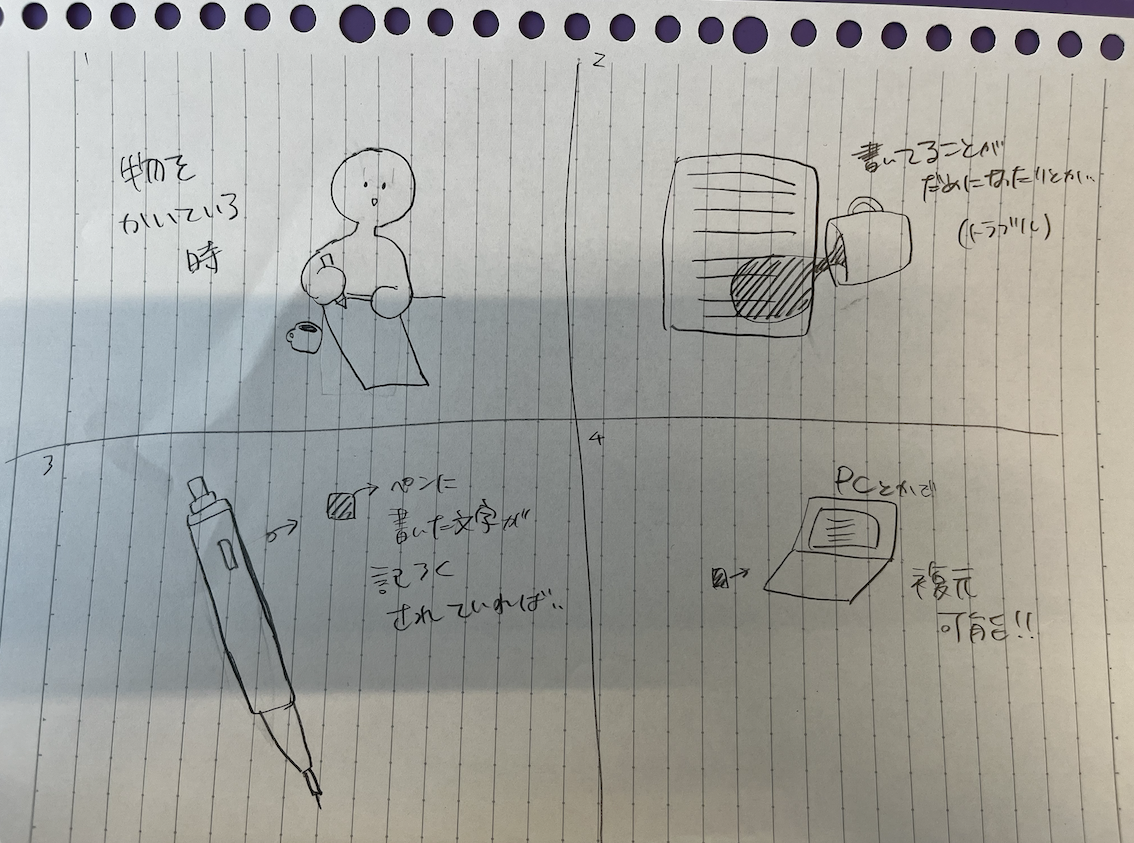 1
物を
かいている
時
2
書いてることが
だめになったりとか..
(トラブル)
3
ペンに
書いた文字が
記ろく
されていれば..
4
PCとかで
復元
可能!!